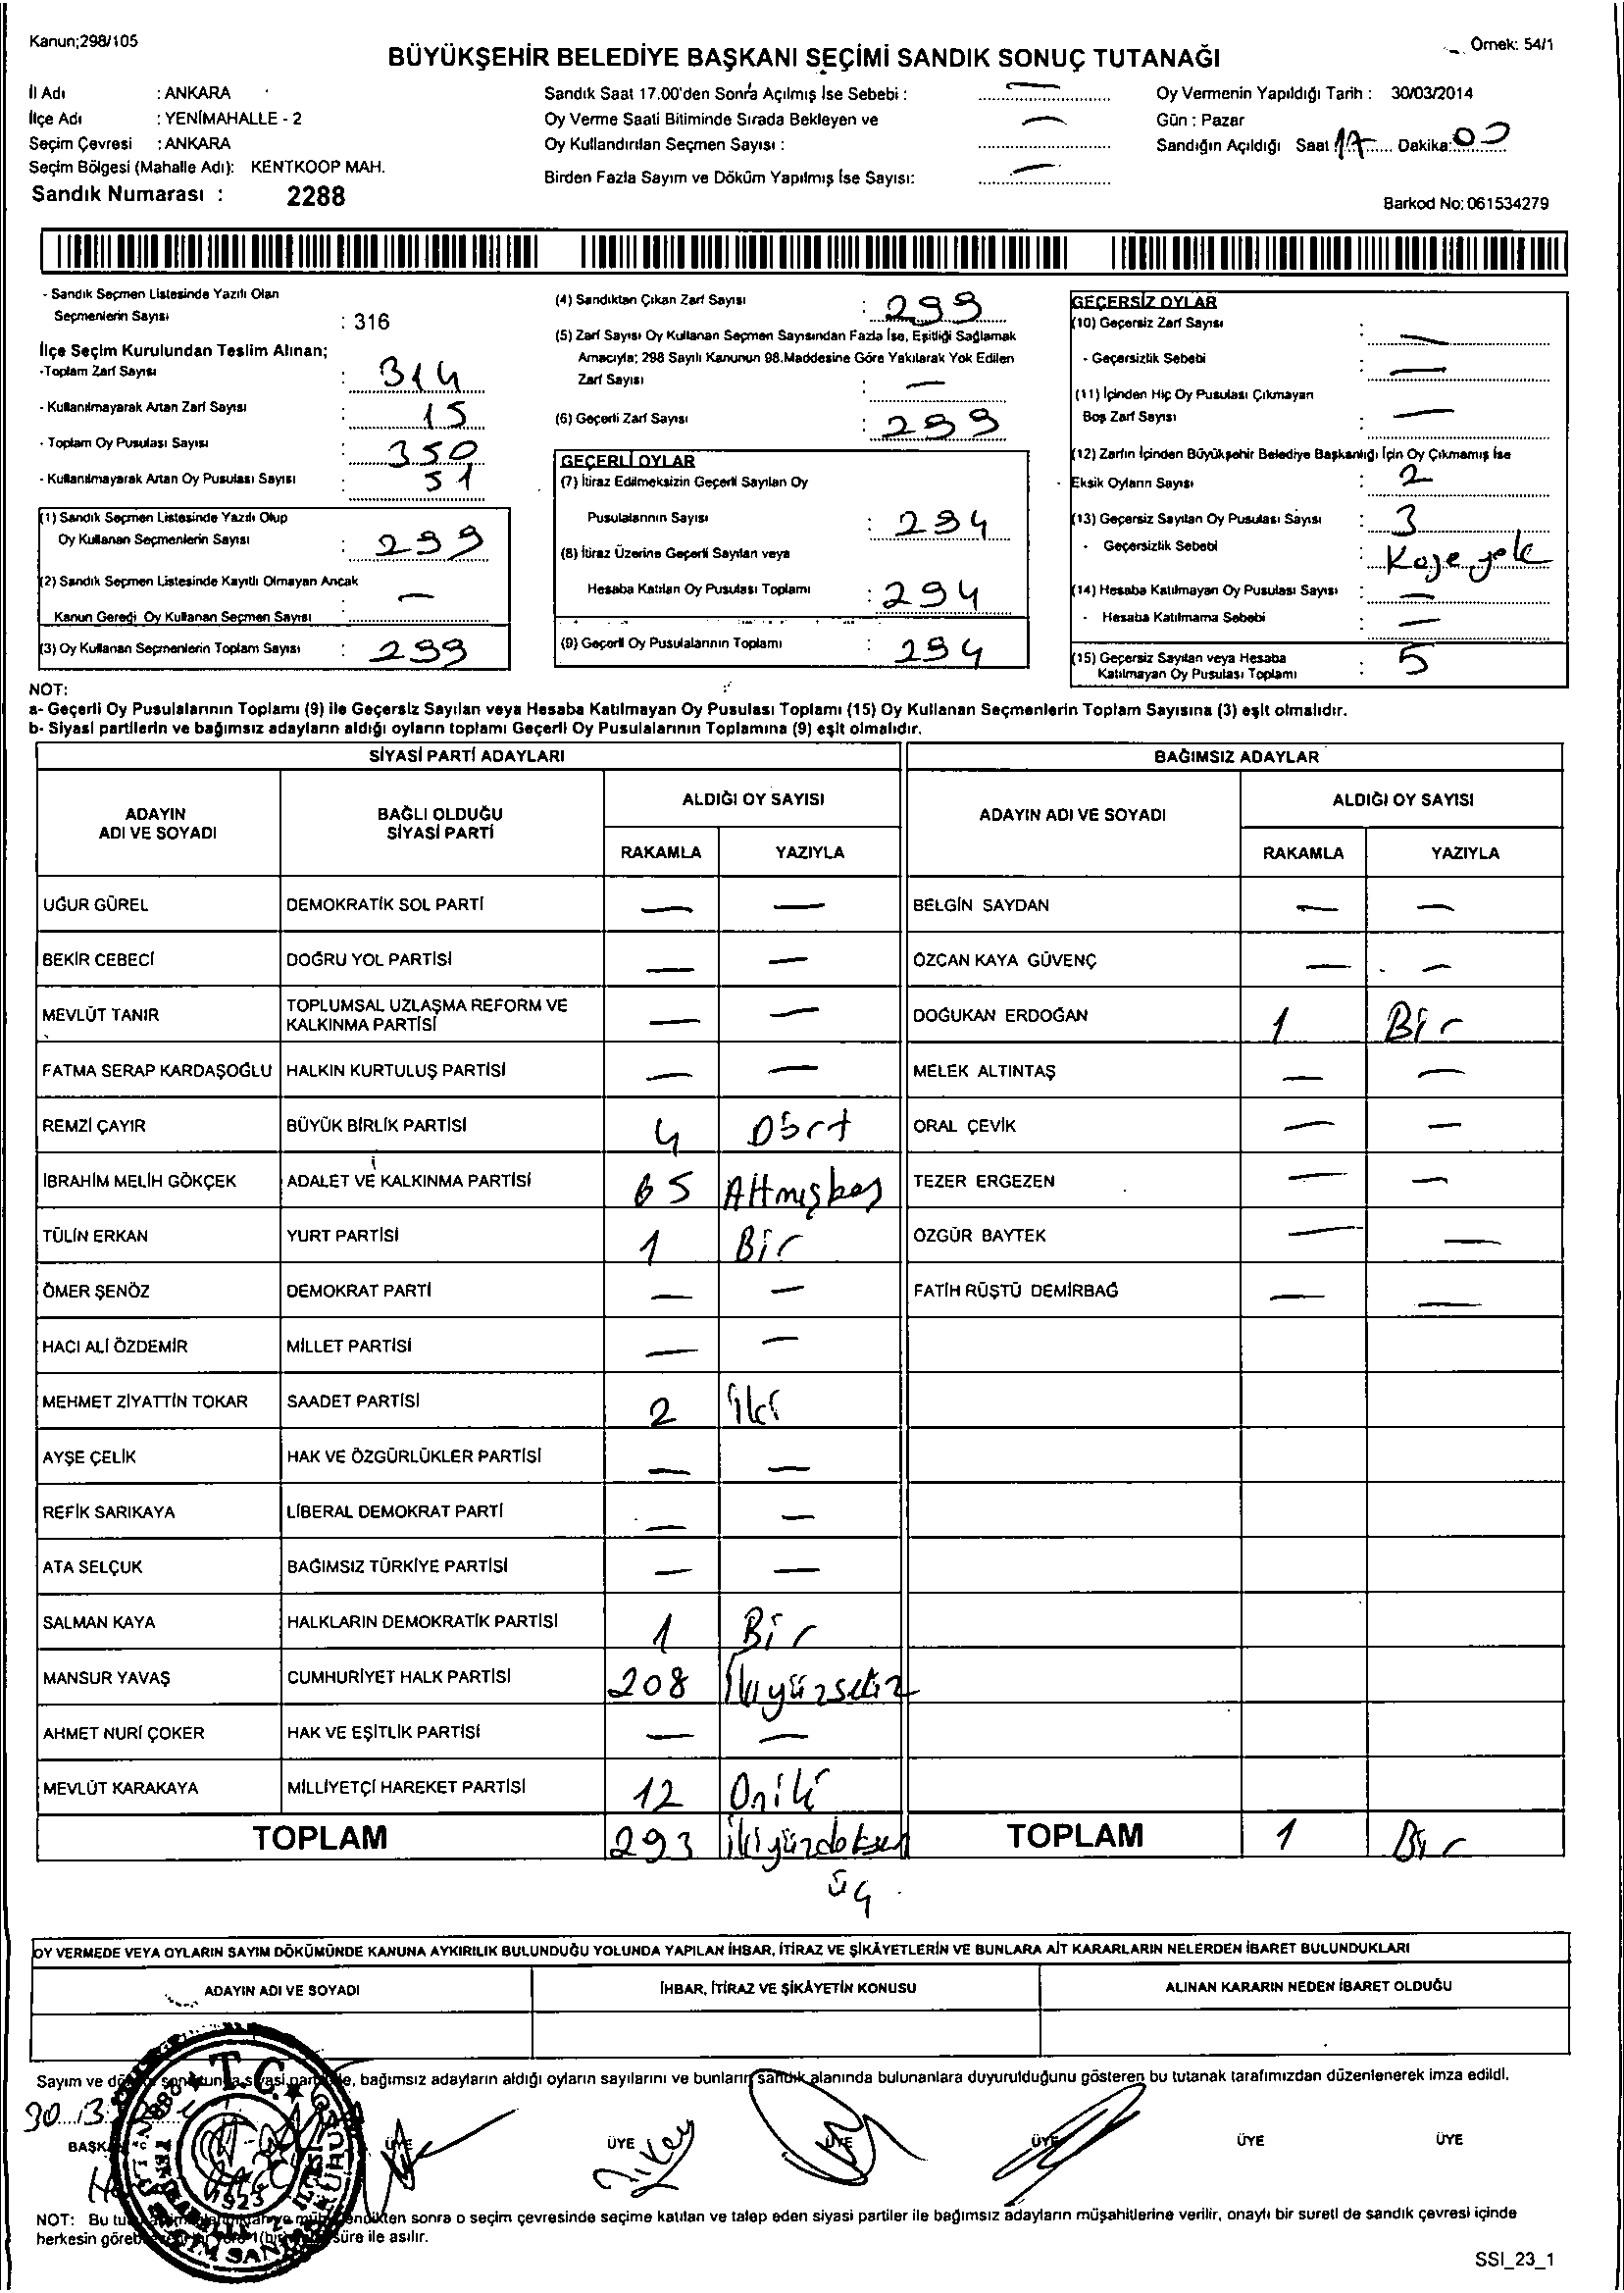 Kanun;298/105
Örnek: 54/1
BÜYÜKŞEHİR BELEDİYE BAŞKANI SEÇİMİ SANDIK SONUÇ TUTANAĞI
İl Adı : ANKARA
İlçe Adı : YENİMAHALLE - 2
Seçim Çevresi : ANKARA
Seçim Bölgesi (Mahalle Adı): KENTKOOP MAH.
Sandık Numarası : 2288
Sandık Saat 17.00'den Sonra Açılmış İse Sebebi : —
Oy Verme Saati Bitiminde Sırada Bekleyen ve
Oy Kullandırılan Seçmen Sayısı : —
Birden Fazla Sayım ve Döküm Yapılmış İse Sayısı: —
Oy Vermenin Yapıldığı Tarih : 30/03/2014
Gün : Pazar
Sandığın Açıldığı Saat 17 Dakika: 00
Barkod No: 061534279
- Sandık Seçmen Listesinde Yazılı Olan
Seçmenlerin Sayısı : 316
İlçe Seçim Kurulundan Teslim Alınan;
-Toplam Zarf Sayısı : 314
- Kullanılmayarak Artan Zarf Sayısı : 15
- Toplam Oy Pusulası Sayısı : 350
- Kullanılmayarak Artan Oy Pusulası Sayısı : 51
(1) Sandık Seçmen Listesinde Yazılı Olup
Oy Kullanan Seçmenlerin Sayısı : 299
(2) Sandık Seçmen Listesinde Kayıtlı Olmayan Ancak
Kanun Gereği Oy Kullanan Seçmen Sayısı —
(3) Oy Kullanan Seçmenlerin Toplam Sayısı : 299
(4) Sandıktan Çıkan Zarf Sayısı : 299
(5) Zarf Sayısı Oy Kullanan Seçmen Sayısından Fazla İse, Eşitliği Sağlamak
Amacıyla; 298 Sayılı Kanunun 98.Maddesine Göre Yakılarak Yok Edilen
Zarf Sayısı : —
(6) Geçerli Zarf Sayısı : 299
GEÇERLİ OYLAR
(7) İtiraz Edilmeksizin Geçerli Sayılan Oy
Pusulalarının Sayısı : 294
(8) İtiraz Üzerine Geçerli Sayılan veya
Hesaba Katılan Oy Pusulası Toplamı : 294
(9) Geçerli Oy Pusulalarının Toplamı : 294
GEÇERSİZ OYLAR
(10) Geçersiz Zarf Sayısı : —
- Geçersizlik Sebebi : —
(11) İçinden Hiç Oy Pusulası Çıkmayan
Boş Zarf Sayısı : —
(12) Zarfın İçinden Büyükşehir Belediye Başkanlığı İçin Oy Çıkmamış İse
Eksik Oyların Sayısı : 2
(13) Geçersiz Sayılan Oy Pusulası Sayısı : 3
- Geçersizlik Sebebi :
(14) Hesaba Katılmayan Oy Pusulası Sayısı : —
- Hesaba Katılmama Sebebi : —
(15) Geçersiz Sayılan veya Hesaba
Katılmayan Oy Pusulası Toplamı : 5
NOT:
a- Geçerli Oy Pusulalarının Toplamı (9) ile Geçersiz Sayılan veya Hesaba Katılmayan Oy Pusulası Toplamı (15) Oy Kullanan Seçmenlerin Toplam Sayısına (3) eşit olmalıdır.
b- Siyasi partilerin ve bağımsız adayların aldığı oyların toplamı Geçerli Oy Pusulalarının Toplamına (9) eşit olmalıdır.
SİYASİ PARTİ ADAYLARI
BAĞIMSIZ ADAYLAR
ADAYIN
ADI VE SOYADI
BAĞLI OLDUĞU
SİYASİ PARTİ
ALDIĞI OY SAYISI
RAKAMLA YAZIYLA
ADAYIN ADI VE SOYADI
ALDIĞI OY SAYISI
RAKAMLA YAZIYLA
UĞUR GÜREL DEMOKRATİK SOL PARTİ — — BELGİN SAYDAN — —
BEKİR CEBECİ DOĞRU YOL PARTİSİ — — ÖZCAN KAYA GÜVENÇ — —
MEVLÜT TANIR TOPLUMSAL UZLAŞMA REFORM VE
KALKINMA PARTİSİ — — DOĞUKAN ERDOĞAN 1 Bir
FATMA SERAP KARDAŞOĞLU HALKIN KURTULUŞ PARTİSİ — — MELEK ALTINTAŞ — —
REMZİ ÇAYIR BÜYÜK BİRLİK PARTİSİ 4 Dört ORAL ÇEVİK — —
İBRAHİM MELİH GÖKÇEK ADALET VE KALKINMA PARTİSİ 65 Altmışbeş TEZER ERGEZEN — —
TÜLİN ERKAN YURT PARTİSİ 1 Bir ÖZGÜR BAYTEK — —
ÖMER ŞENÖZ DEMOKRAT PARTİ — — FATİH RÜŞTÜ DEMİRBAĞ — —
HACI ALİ ÖZDEMİR MİLLET PARTİSİ — —
MEHMET ZİYATTİN TOKAR SAADET PARTİSİ 2 iki
AYŞE ÇELİK HAK VE ÖZGÜRLÜKLER PARTİSİ — —
REFİK SARIKAYA LİBERAL DEMOKRAT PARTİ — —
ATA SELÇUK BAĞIMSIZ TÜRKİYE PARTİSİ — —
SALMAN KAYA HALKLARIN DEMOKRATİK PARTİSİ 1 Bir
MANSUR YAVAŞ CUMHURİYET HALK PARTİSİ 208 İkiyüzsekiz
AHMET NURİ ÇOKER HAK VE EŞİTLİK PARTİSİ — —
MEVLÜT KARAKAYA MİLLİYETÇİ HAREKET PARTİSİ 12 Oniki
TOPLAM 293 ikiyüzdoksan TOPLAM 1 Bir
üç
OY VERMEDE VEYA OYLARIN SAYIM DÖKÜMÜNDE KANUNA AYKIRILIK BULUNDUĞU YOLUNDA YAPILAN İHBAR, İTİRAZ VE ŞİKÂYETLERİN VE BUNLARA AİT KARARLARIN NELERDEN İBARET BULUNDUKLARI
ADAYIN ADI VE SOYADI İHBAR, İTİRAZ VE ŞİKÂYETİN KONUSU ALINAN KARARIN NEDEN İBARET OLDUĞU
Sayım ve bağımsız adayların aldığı oyların sayılarını ve bunların sandık alanında bulunanlara duyurulduğunu gösteren bu tutanak tarafımızdan düzenlenerek imza edildi.
30 3
ÜYE ÜYE ÜYE ÜYE ÜYE ÜYE
T.C.
1923
NOT: Bu sonra o seçim çevresinde seçime katılan ve talep eden siyasi partiler ile bağımsız adayların müşahitlerine verilir, onaylı bir sureti de sandık çevresi içinde
herkesin süre ile asılır.
SSI_23_1